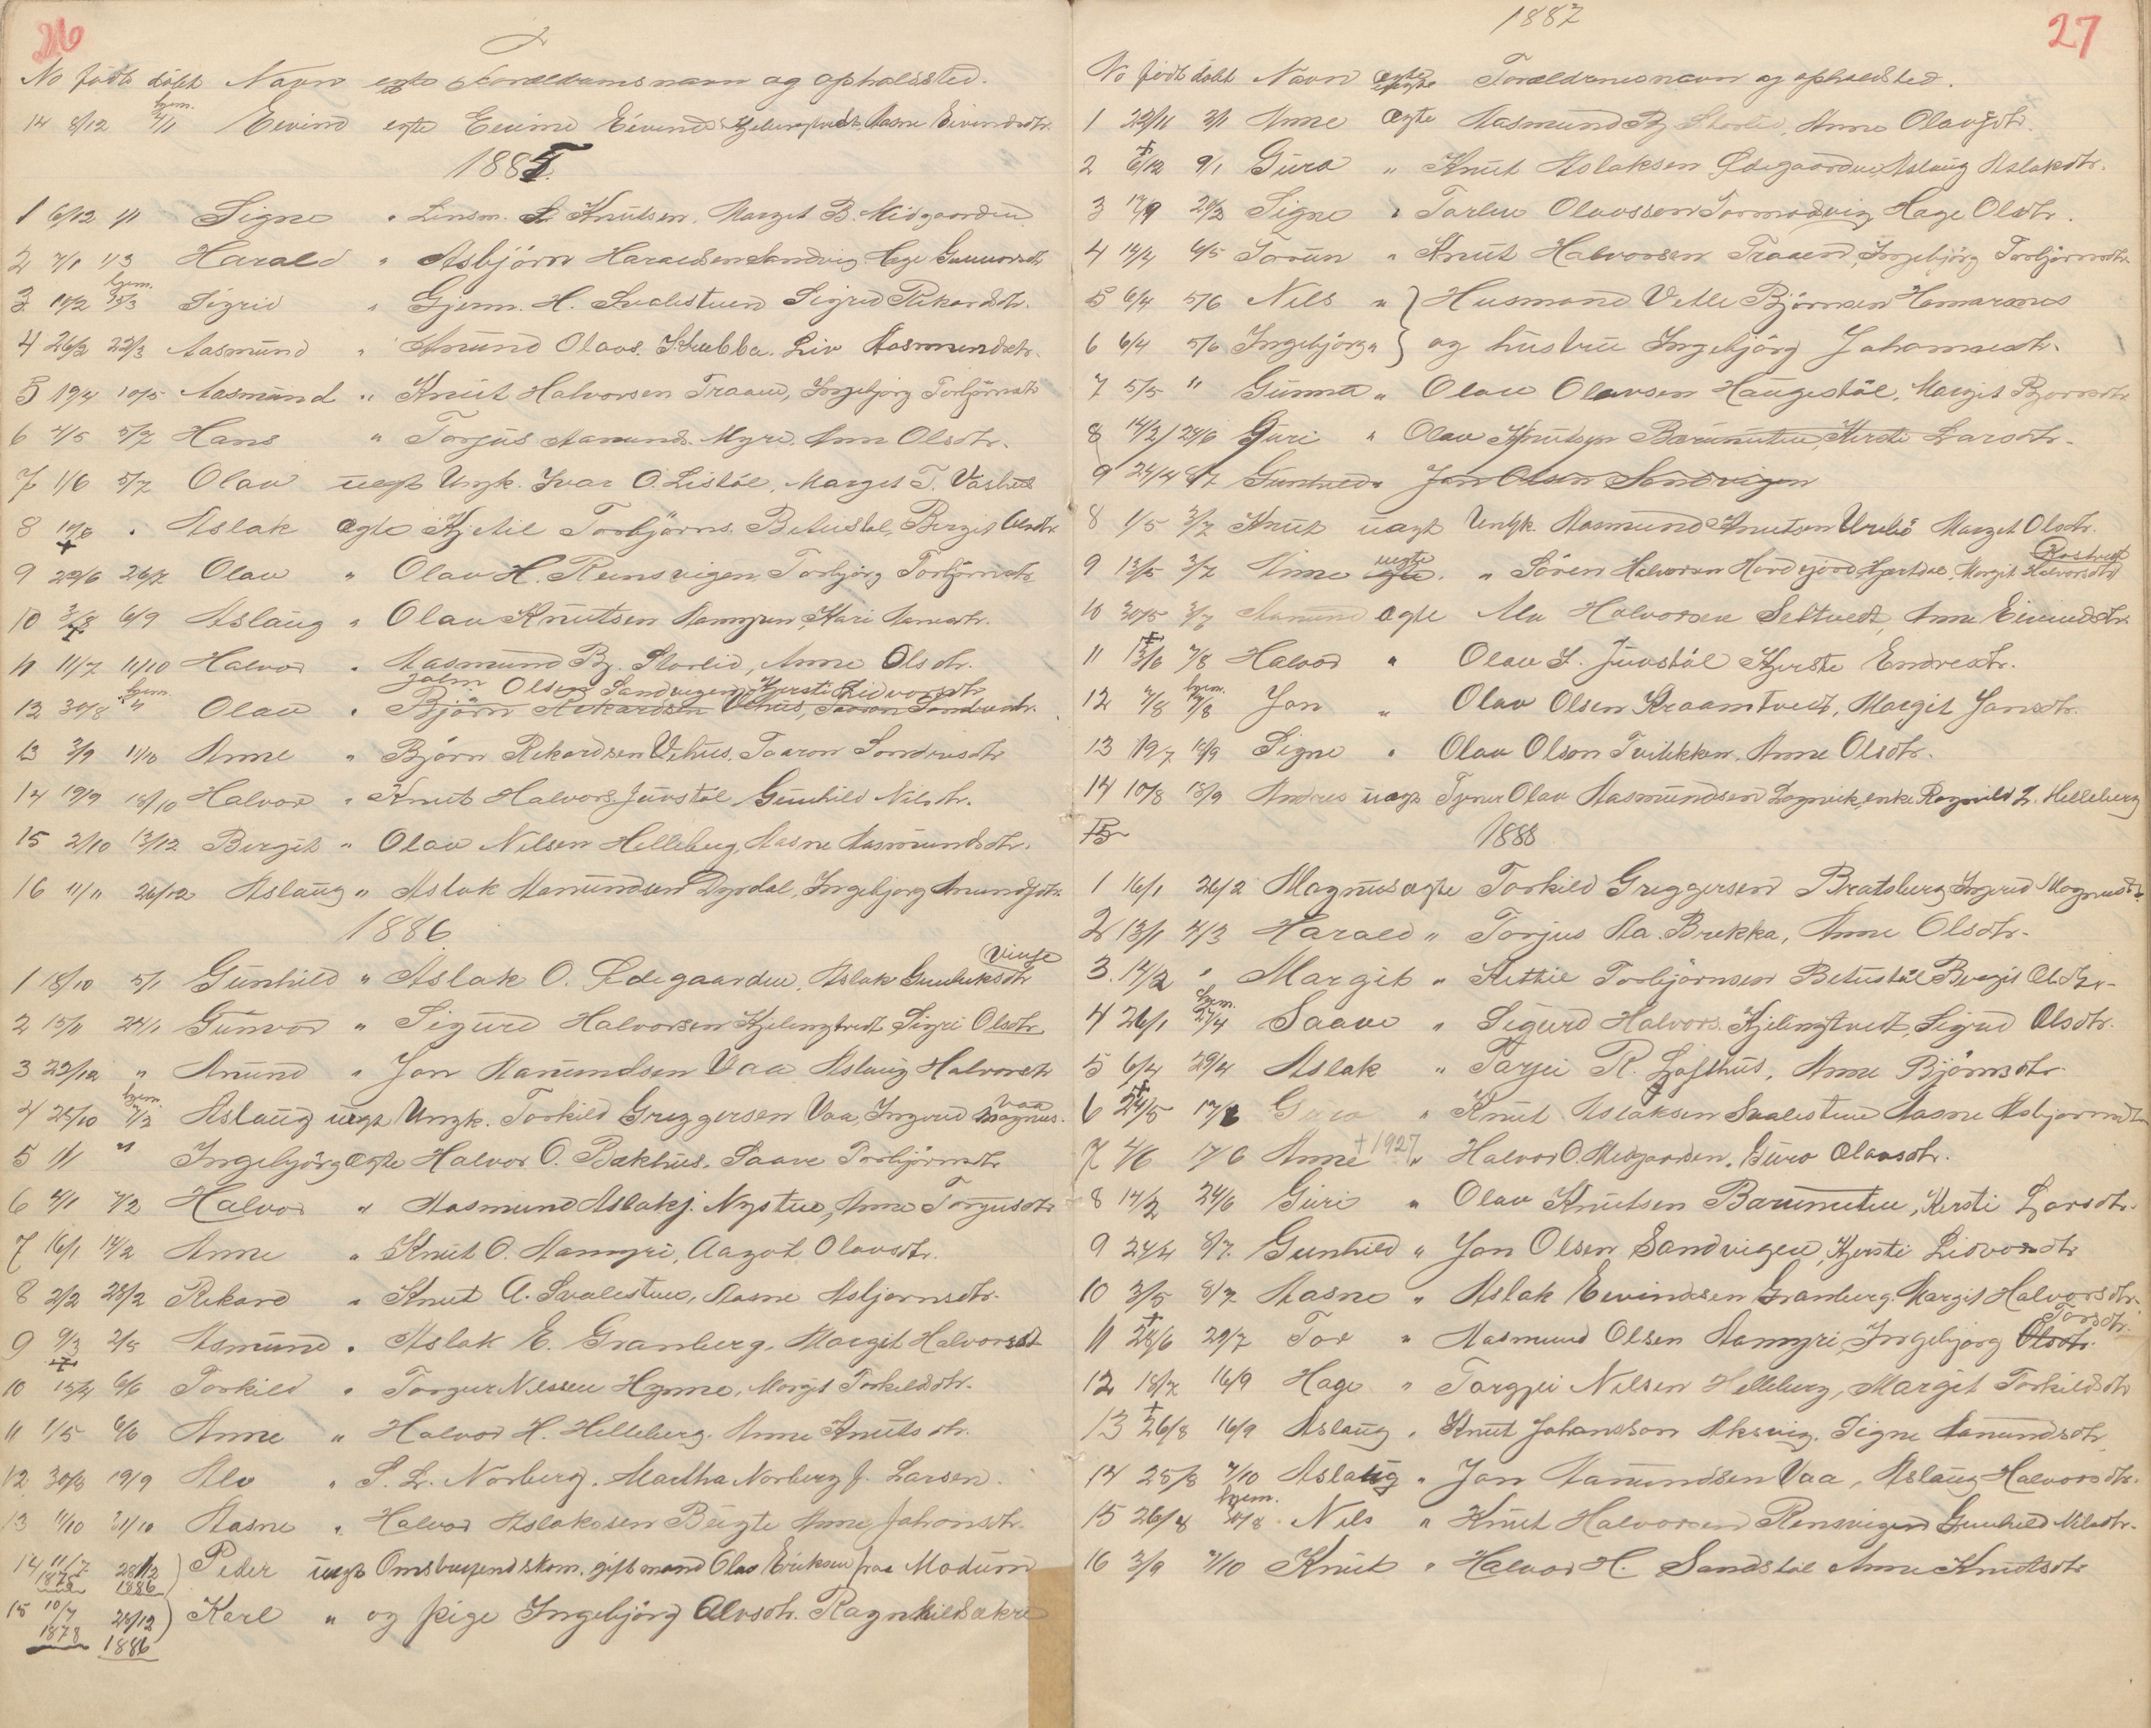 26
No født døbt Navn egte Forældrens navn og opholdssted.
hjem.
14 8/12 4/1 Eivind egte Eivind Eivinds. Kjelingtvedt Aasne Eivindsdtr.
1885.
1 6/12 1/1 Signe " Lensm. Knutsen. Margit B. Midgaarden
2 7/1 1/3 Harald " Asbjörn Haraldsen Sandvig Hege Gunnarsdtr
hjem.
3 10/2 25/3 Sigrid " Gjerm. H. Svalestuen Sigrid Rikardsdtr.
4 26/2 22/3 Aasmund " Anund Olavs. Skubba. Liv Aasmundsdtr.
5 19/4 10/5 Aasmund " Knut Halvorsen Traaen, Ingebjörg Torbjörnsdtr
6 4/5 5/7 Hans " Torjus Aamunds. Myre. Ann Olsdtr.
7 1/6 5/7 Olav uegt Ungk. Ivar O. Listöl, Margit T. Vashus
8 10/6 " Aslak egte Kjetil Torbjörns. Bitustöl, Bergit Olsdtr
9 22/6 26/7 Olav " Olav H. Reinsvigen, Torbjörg Torbjörnsdtr
10 3/8 6/9 Aslaug " Olav Knutsen Aamyren, Kari
11 11/7 11/10 Halvor " Aasmund Bj. Storlid, Anne Olsdtr.
hjem. John Olsen Sandvigen Kjersti Lidvorsdtr
12 30/8 " Olav " Björn Rikardsen Vehus, Taaron Sondresdtr.
13 3/9 11/10 Anne " Björn Rikardsen Vehus. Taaron Sondresdtr
14 19/9 18/10 Halvor " Knut Halvors. Juvstöl Gunhild Nilsdtr.
15 2/10 13/12 Bergit " Olav Nilsen Helleberg, Aasne Aasmundsdtr.
16 11/11 26/12 Aslaug " Aslak Aanundsen Dyrdal, Ingebjörg Anundsdtr.
1886
Vinje
1 18/10 5/1 Gunhild " Aslak O. Ødegaarden, Aslak Gunleksdtr
2 15/11 24/1 Gunvor " Sigurd Halvorsen Kjelingtvedt Sigri Olsdtr
3 22/12 " Anund " Jon Aanundsen Vaa Aslaug Halvorsdtr
hjem. Vaa
4 25/10 7/2 Aslaug uegt Ungk. Torkild Greggersen Vaa, Ingerid Magnus.
5 1/1 " Ingebjörg egte Halvor O. Bakhus. Saave Torbjörnsdtr
6 4/1 7/2 Halvor " Aasmund Aslaks. Nystue, Anne Torjusdtr
7 16/1 14/2 Anne " Knut O. Aamyri, Aagot Olavsdtr.
8 2/2 28/2 Rikard " Knut A. Svalestuen, Aasne Asbjørnsdtr.
9 9/3 2/5 Asmund " Aslak E. Granberg, Margit Halvorsdtr
10 15/4 6/6 Torkild " Torgur Nilssen Hynne, Margit Torkildsdtr.
11 1/5 6/6 Anne " Halvor H. Helleberg. Anne Knutsdtr.
12 30/8 19/9 Alv " S. L. Norberg, Martha Norberg f. Larsen.
13 11/10 31/10 Aasne " Halvor Aslaksen Bügte Anne Johansdtr.
14 11/7 1875 28/12 1886 ) Peder uegt Omstreifend skom. gift mand Olav Eriksen fra Modum
15 10/7 1878 28/12 1886 ) Karl " og pige Ingebjörg Alvsdtr. Ragnhildsakre
1887
27
No født døbt Navn egte Forældrenes navn og opholdsted.
1 22/11 2/1 Anne egte Aasmund Bj. Storlid, Anne Olavsdtr.
2 6/12 9/1 Guro " Knut Aslaksen Ødegaarden, Aslaug Aslaksdtr.
3 17/9 20/2 Signe " Tarlev Olavssen Tormodsvig Hage Olsdtr.
4 14/2 6/5 Torun " Knut Halvorsen Traaen, Ingebjörg Torbjörnsdtr
5 6/4 5/6 Nils " } Husmand Vetle Björnsen Hamaranes
6 6/4 5/6 Ingebjörg " } og hustru Ingebjörg Johannesdtr.
7 5/5 " Gunna " Olav Olavsen Haugestöl, Margit Bjornsdtr
8 14/2 24/6 Guri " Olav Knutsen Barunuten, Kersti Larsdtr.
9 24/4 8/7 Gunhild " Jon Olsen Sandvigen
8 1/5 3/7 Knut uegt Ungk. Aasmund Knutsen Urebö Margit Olsdtr.
uegte Rostvedt
9 13/5 3/7 Anne egte. " Sören Halvorsen Nordfjord Hjartdal, Margit Halvorsdtr
10 30/5 3/7 Aanund egte Alv Halvorsen Seltvedt, Anne Eivindsdtr
11 13/6 7/8 Halvor " Olav L. Juvstöl Kjersti Endresdtr.
hjem.
12 7/8 7/8 Jon " Olav Olsen Kraamtvedt, Margit Jonsdtr.
13 19/7 18/9 Signe " Olav Olson Tveitekken, Anne Olsdtr.
14 10/8 18/9 Andres uegt Tjener Olav Aasmundsen Lognvik, enke Ragnild L. Helleberg
15
1888
1 16/1 26/2 Magnus egte Torkild Greggersen Bratsberg Ingerid Magnusdtr.
2 13/1 4/3 Harald " Torjus Aa. Brekka, Anne Olsdtr.
3. 14/2 " Margit " Kittil Torbjörnsen Bitustöl Bergit Olsdtr.
hjem.
4 26/1 27/4 Saave " Sigurd Halvors. Kjelingtvedt, Sigrid Olsdtr.
5 6/4 29/4 Aslak " Tarjei R. Lofthus, Anne Björnsdtr.
6 24/5 17/6 Guro " Knut Aslaksen Svalestuen Aasne Asbjørnsdtr
7 4/6 17/6 Anne † 1927 " Halvor O. Midgaarden, Guro Olavsdtr.
8 14/2 24/6 Guri " Olav Knutsen Barunuten, Kersti Larsdtr.
9 24/4 8/7. Gunhild " Jon Olsen Sandvigen, Kjersti Lidvorsdtr
10 3/5 8/7 Aasne " Aslak Eivindsen Granberg. Margit Halvorsdtr.
Torsdtr.
11 28/6 29/7 Tor " Aasmund Olsen Aamyri, Ingebjörg Olsdtr.
12 18/7 16/9 Hage " Targjei Nilsen Helleberg, Margit Torkildsdtr
13 26/8 16/9 Aslaug " Knut Johansson Aksvig. Signe Aanundsdtr
14 25/8 7/10 Aslaug " Jon Aanundsen Vaa, Aslaug Halvorsdtr.
hjem.
15 26/8 30/8 Nils " Knut Halvorsen Rensvigen Gunhild Nilsdtr.
16 3/9 7/10 Knut " Halvor H. Sandstöl Anne Knutsdtr